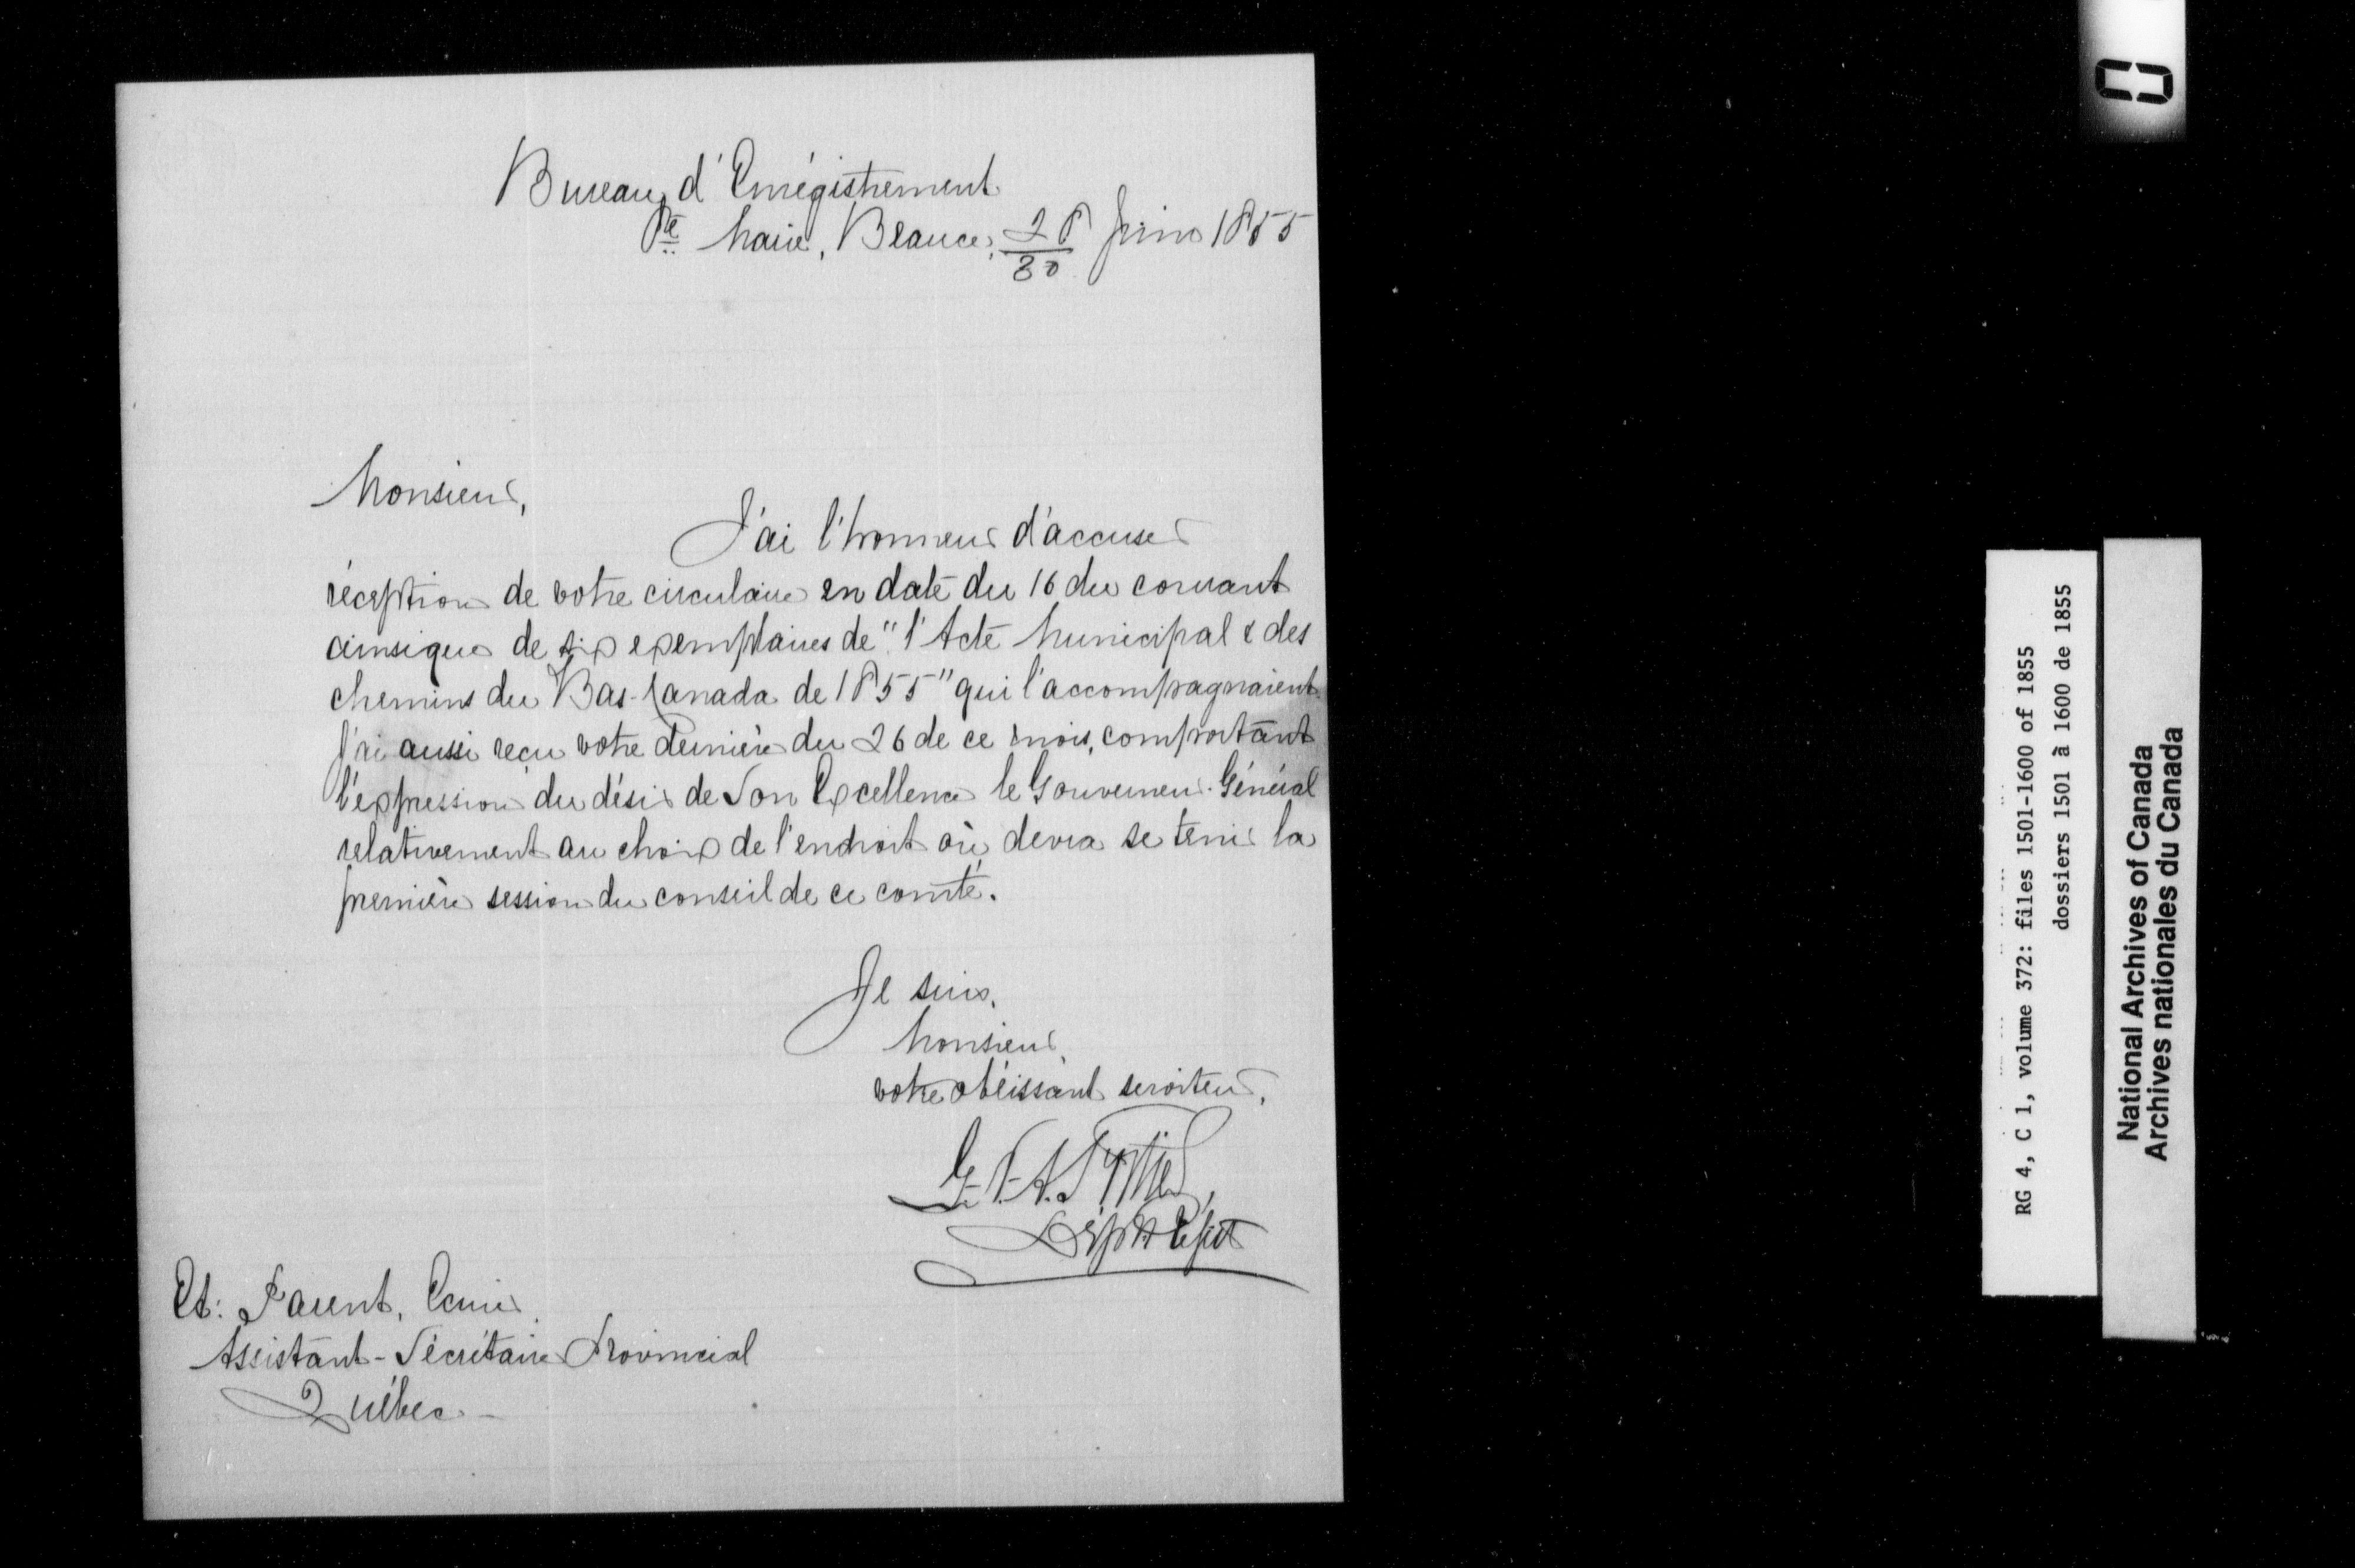 Bureau d'Enrégistrement
Ste Marie, Beauce, 28/30 Juin 1855
Monsieur,
J'ai l'honneur d'accuser
réception de votre circulaire en date du 16 du courant
ainsique de six exemplaires de "l'Acte Municipal & des
chemins du Bas-Canada de 1855" qui l'accompagnaient.
J'ai aussi reçu votre dernière du 26 de ce mois, comportant
l'expression du désir de Son Excellence le Gouverneur-Général
relativement au choix de l'endroit où devra se tenir la
première session du conseil de ce comté.
Je suis,
Monsieur,
votre obéissant serviteur,
Et: Parent, Ecuier,
Assistant-Sécrétaire Provincial
Québec -
RG 4, C 1, volume 372: files 1501-1600 of 1855
dossiers 1501 à 1600 de 1855
National Archives of Canada
Archives nationales du Canada